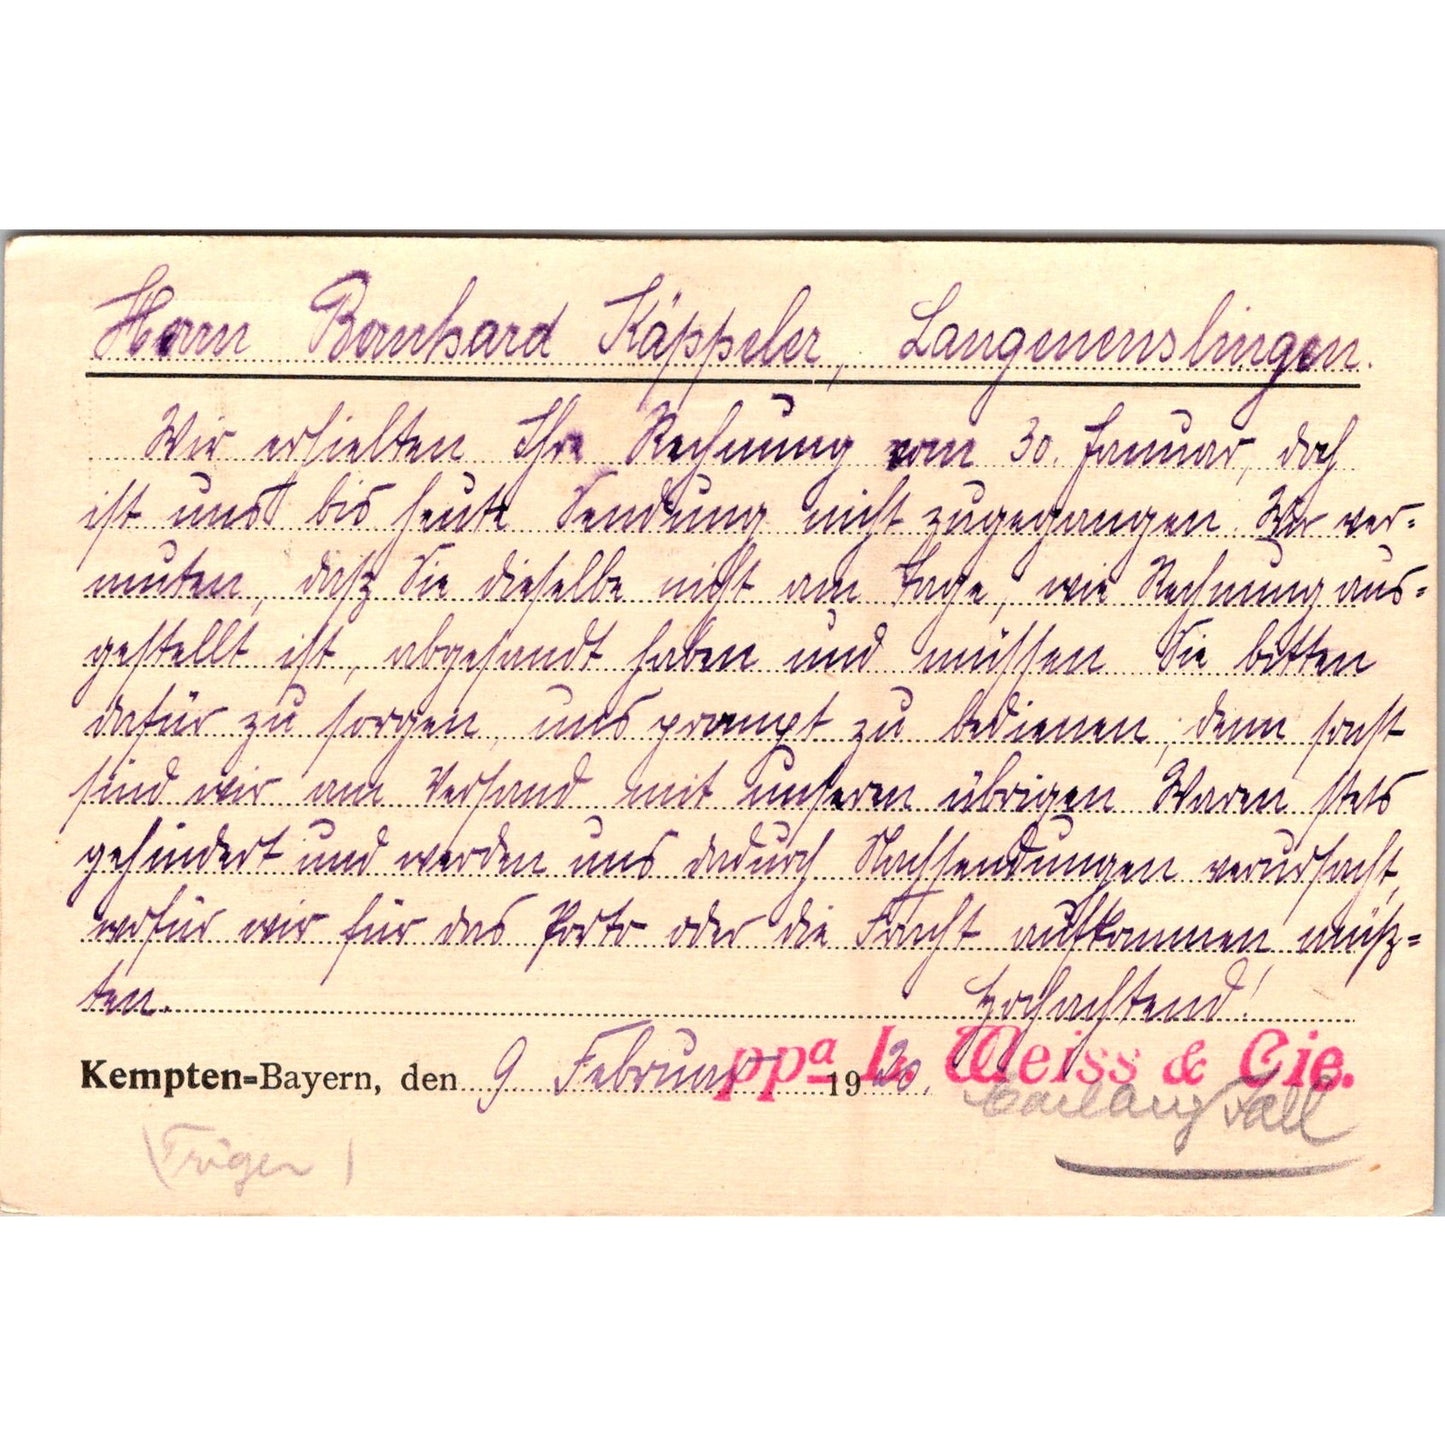 Herrn Bernhard Käppeler, Langenenslingen.
Wir erhielten Ihre Rechnung vom 30. Januar, doch
ist uns bis heute Sendung nicht zugegangen. Wir ver=
muten, daß Sie dieselbe nicht am Tage, wie Rechnung aus=
gestellt ist, abgesandt haben und müssen Sie bitten
dafür zu sorgen, uns prompt zu bedienen, denn sonst
sind wir am Versand mit unseren übrigen Waren stets
gehindert und werden uns dadurch Nachsendungen verursacht,
wofür wir für das Porto oder die Fracht aufkommen müß=
ten. Hochachtend!
Kempten=Bayern, den 9 Februar 1920. ppa L. Weiss & Cie.